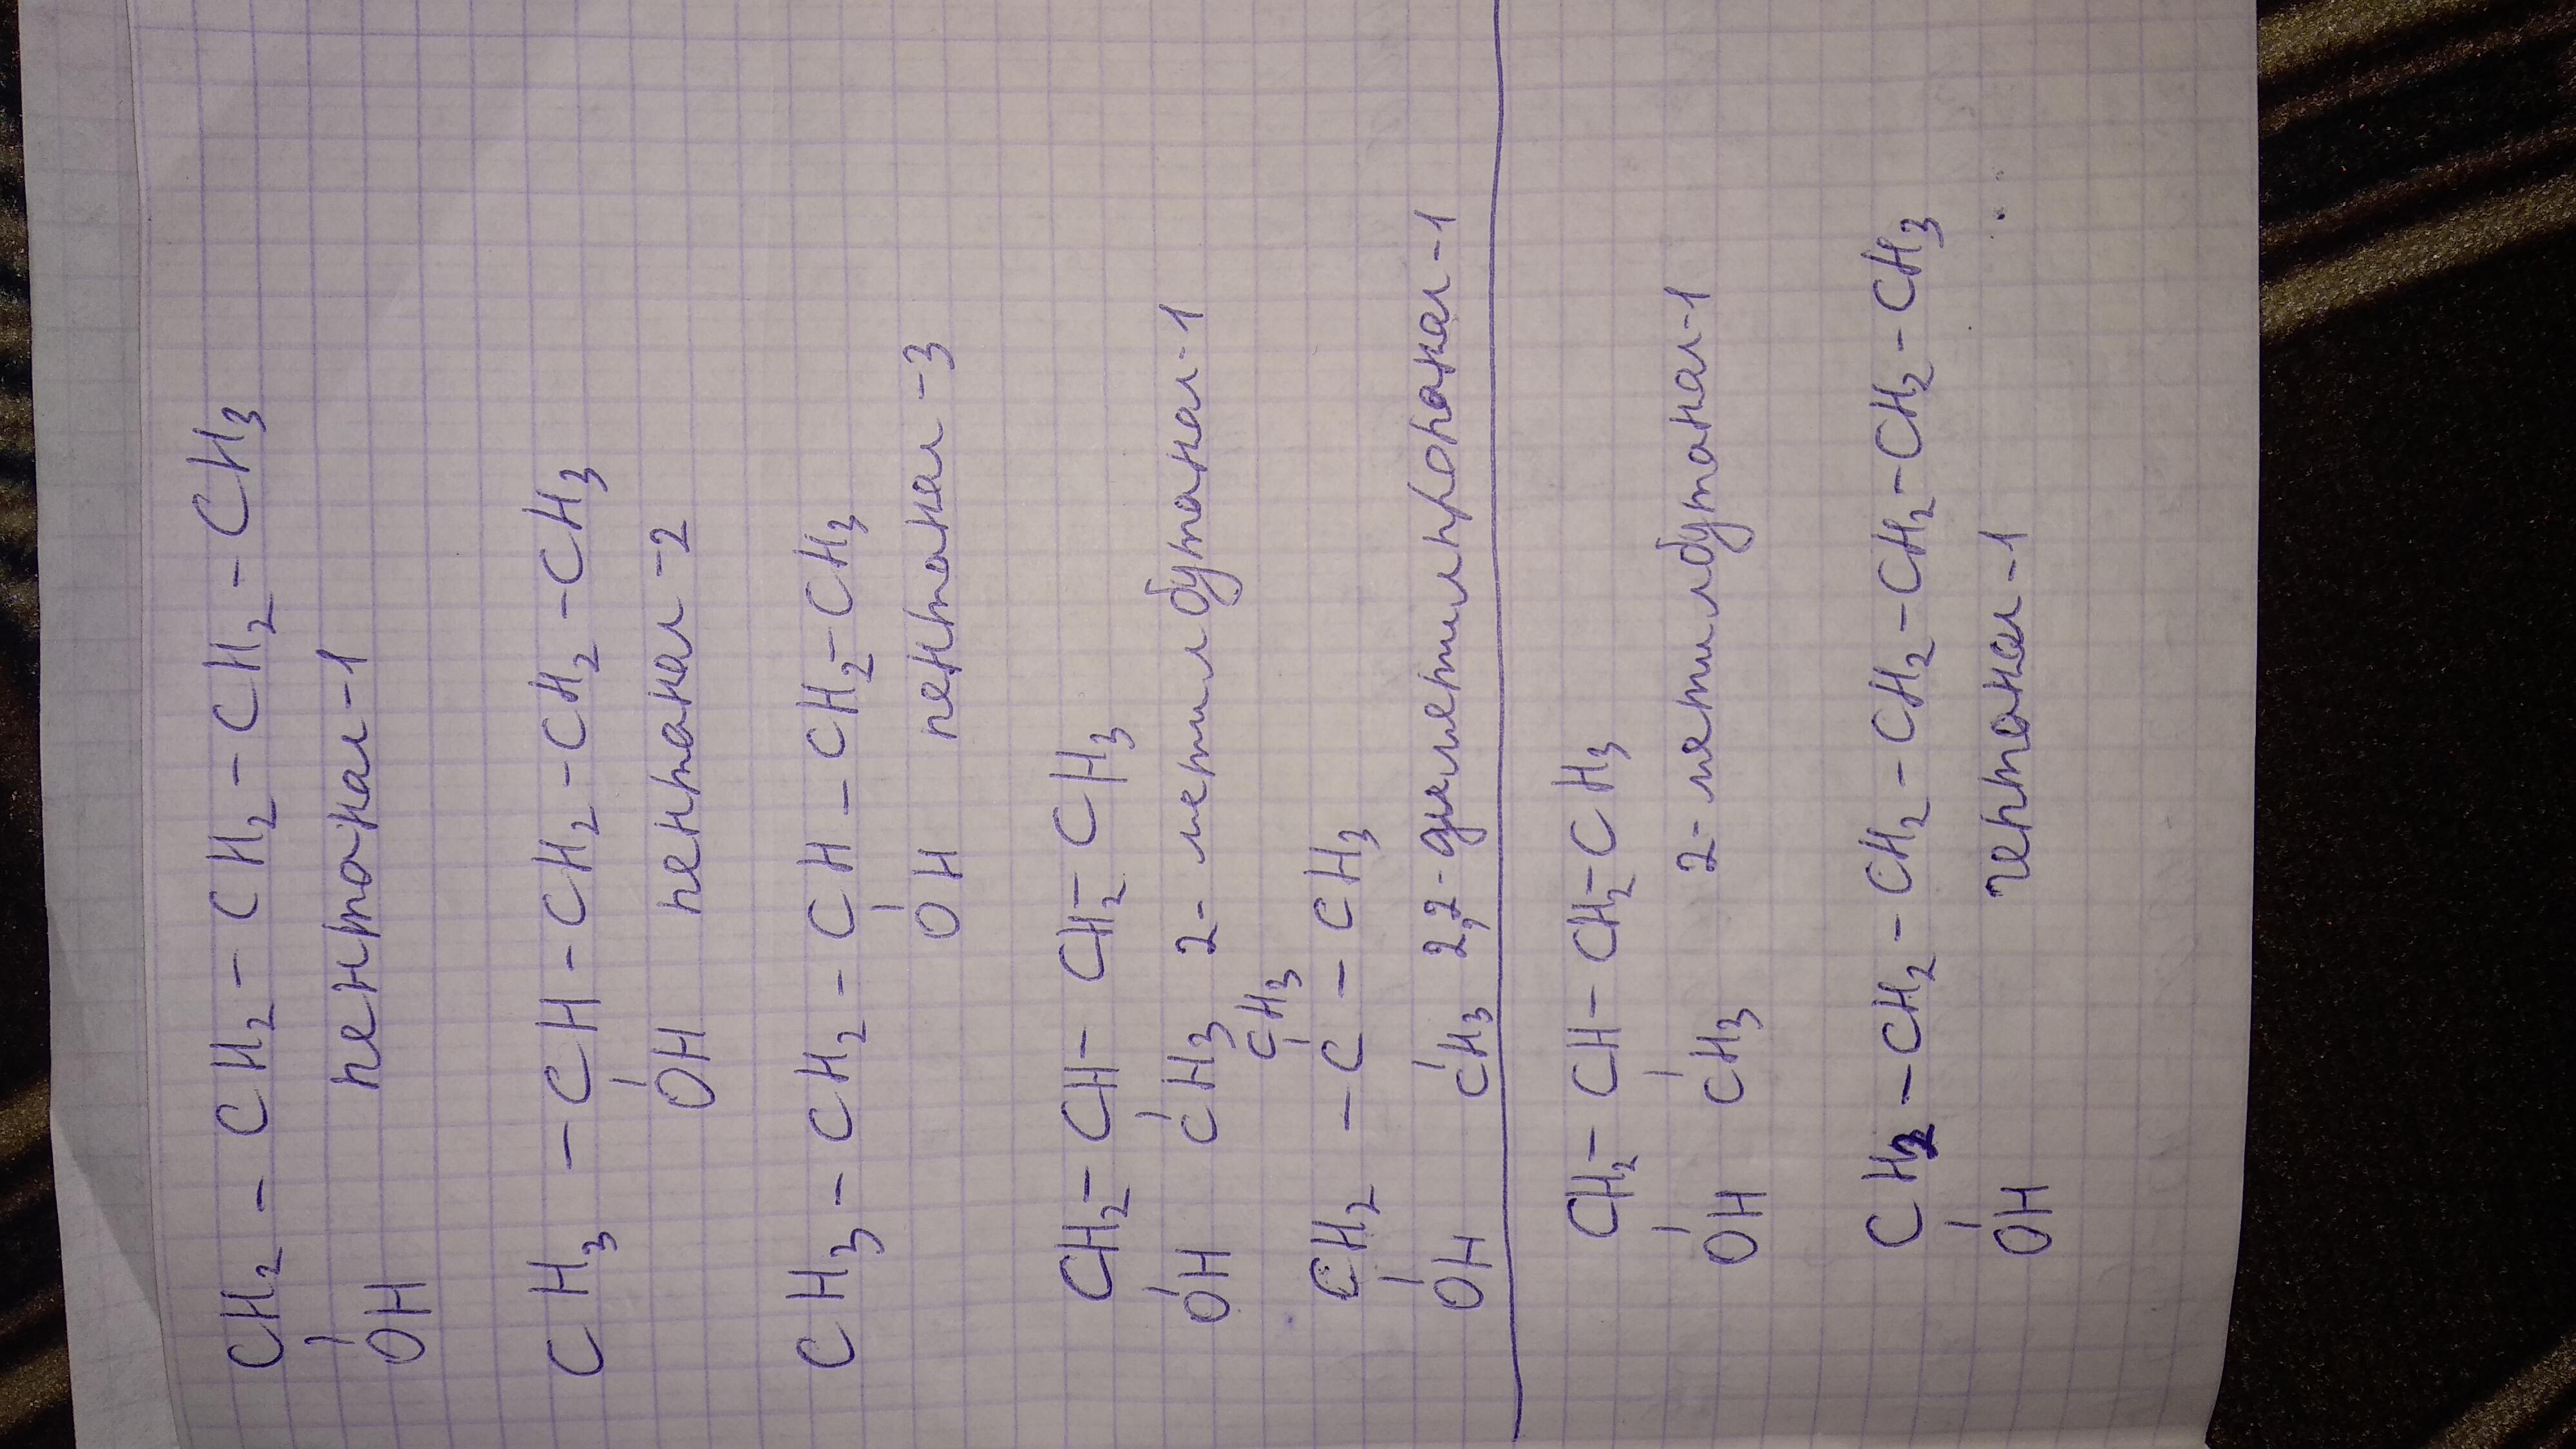 CH₂ - CH₂ - CH₂ - CH₂ - CH₃
OH пентанал-1
CH₃ - CH - CH₂ - CH₂ - CH₃
OH пентанал-2
CH₃ - CH₂ - CH - CH₂ - CH₃
OH пентанал-3
CH₂ - CH - CH₂ - CH₃
OH CH₃ 2-метилбутанал-1
CH₃
CH₂ - C - CH₃
OH CH₃ 2,2-диметилпропанал-1
CH₂ - CH - CH₂ - CH₃
OH CH₃ 2-метилбутанал-1
CH₂ - CH₂ - CH₂ - CH₂ - CH₂ - CH₂ - CH₃
OH гептанал-1